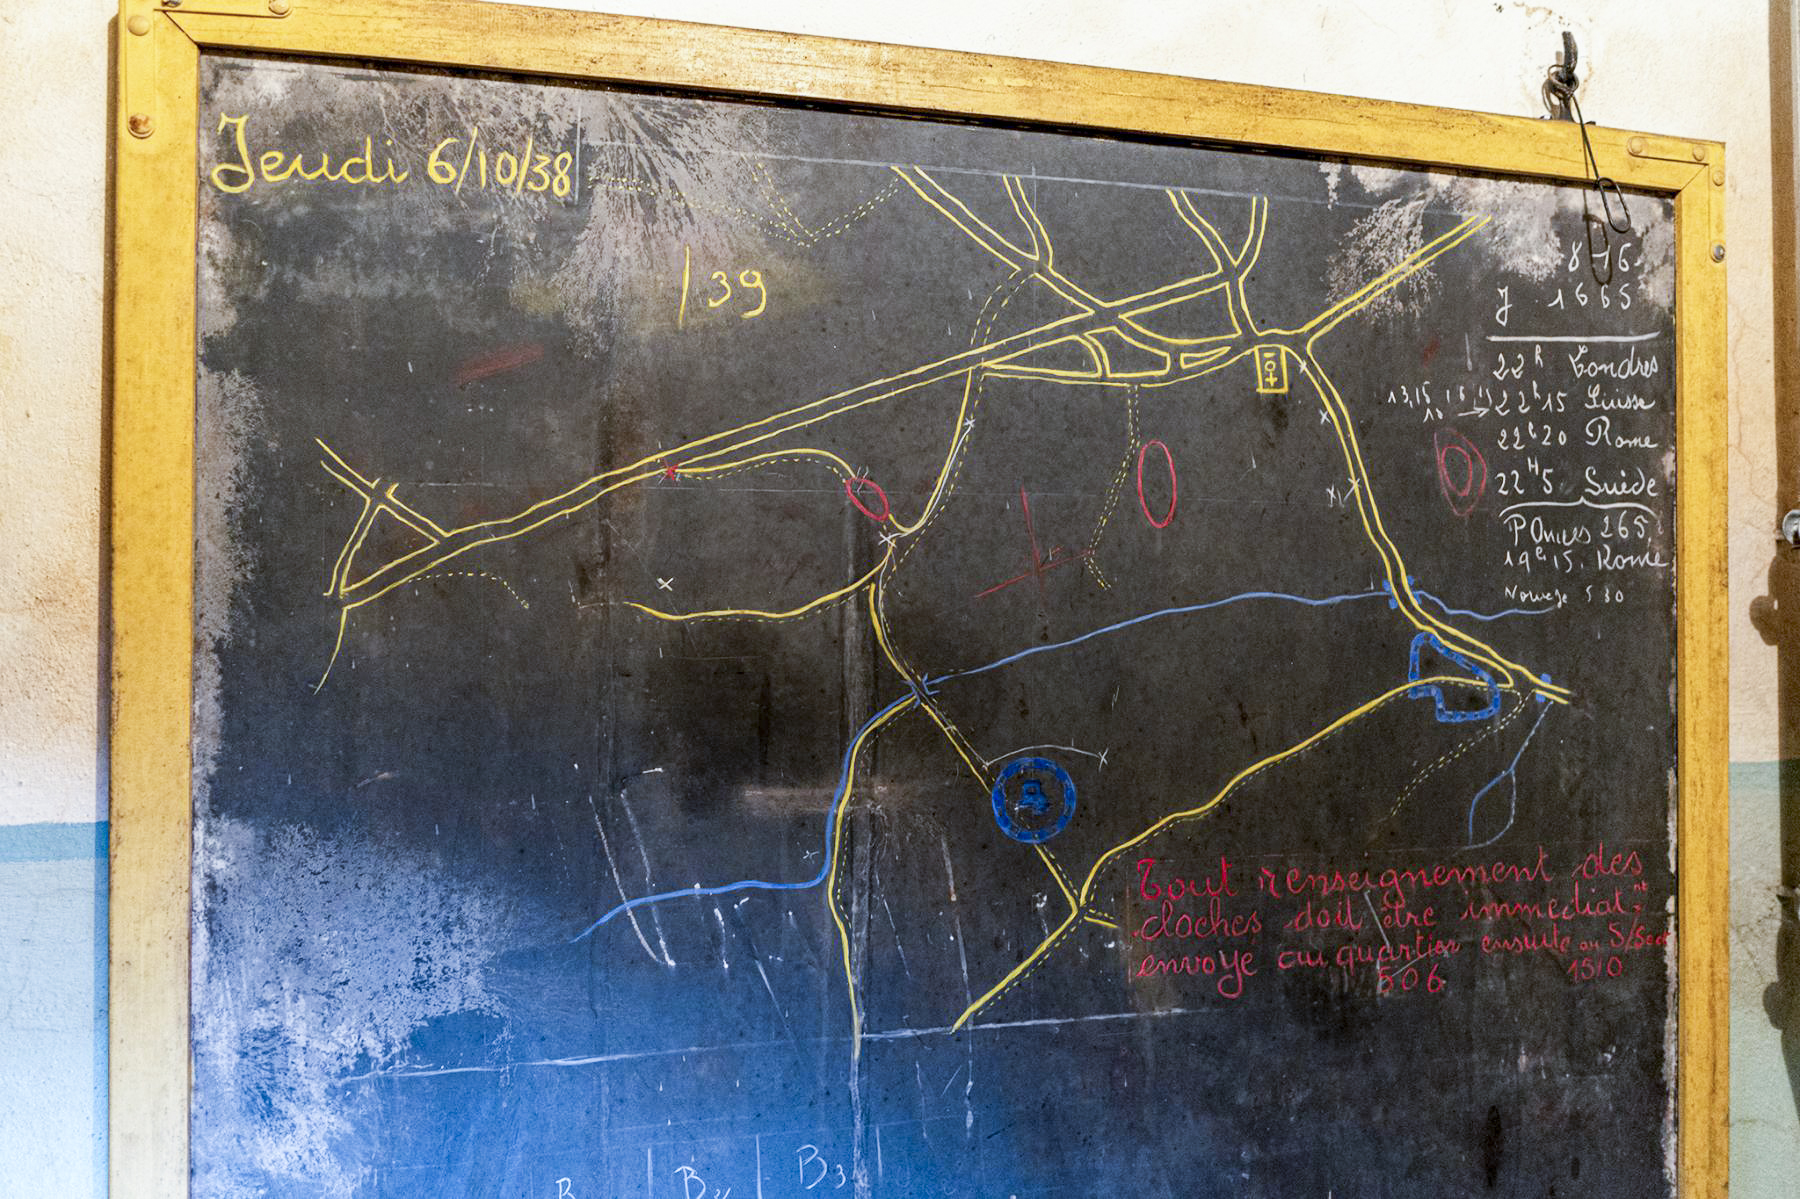 Jeudi 6/10/38
/39
8 16
J 1665
22h Londres
13,15
10 → 22h15 Suisse
22h20 Rome
22H5 Suède
265
19h15. Rome
Norvege 530
Tout renseignement des
cloches doit être immediatnt
envoye au quartier ensuite au S/Sect
506 1510
B3